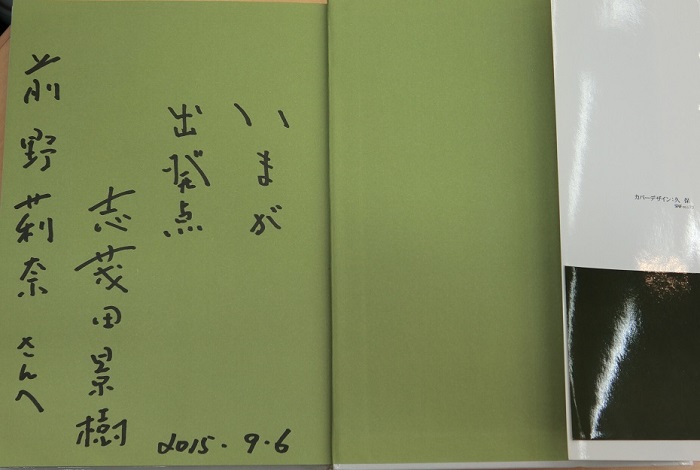 いまが
出発点
志茂田景樹
前野莉奈さんへ
2015.9.6
カバーデザイン:久保